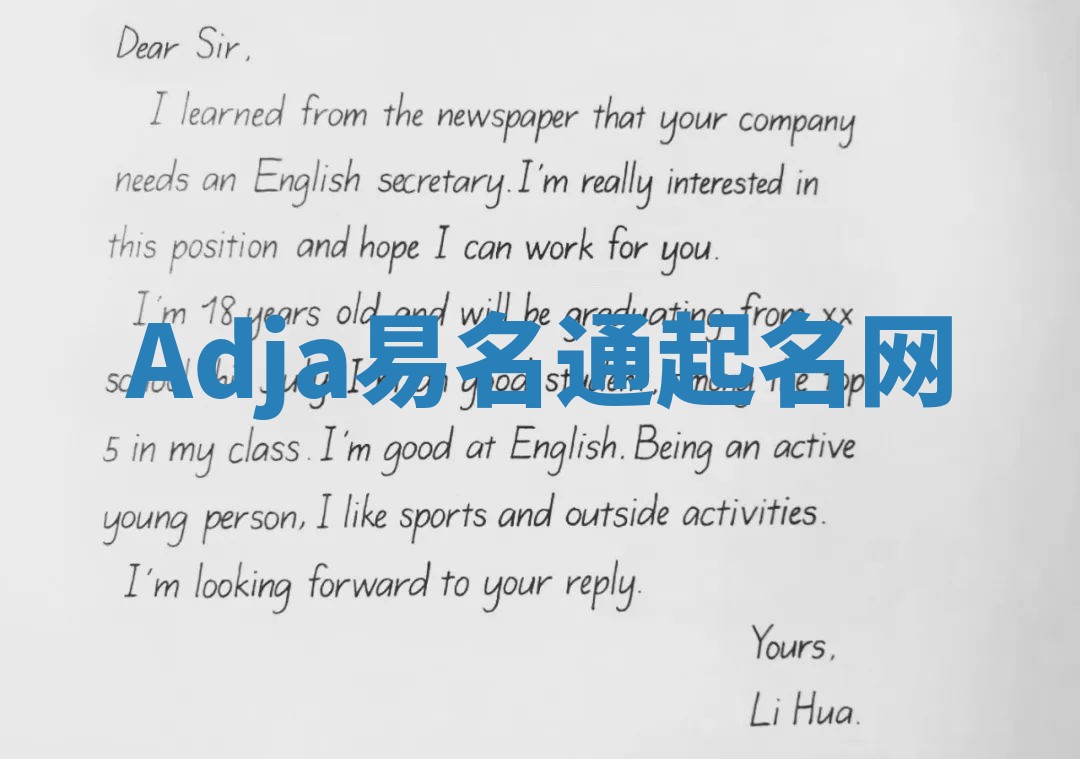 Dear Sir,
I learned from the newspaper that your company
needs an English secretary. I'm really interested in
this position and hope I can work for you.
I'm 18 years old and will be graduating from xx
Adja易名通起名网
school this July. I'm a good student, among the top
5 in my class. I'm good at English. Being an active
young person, I like sports and outside activities.
I'm looking forward to your reply.
Yours,
Li Hua.